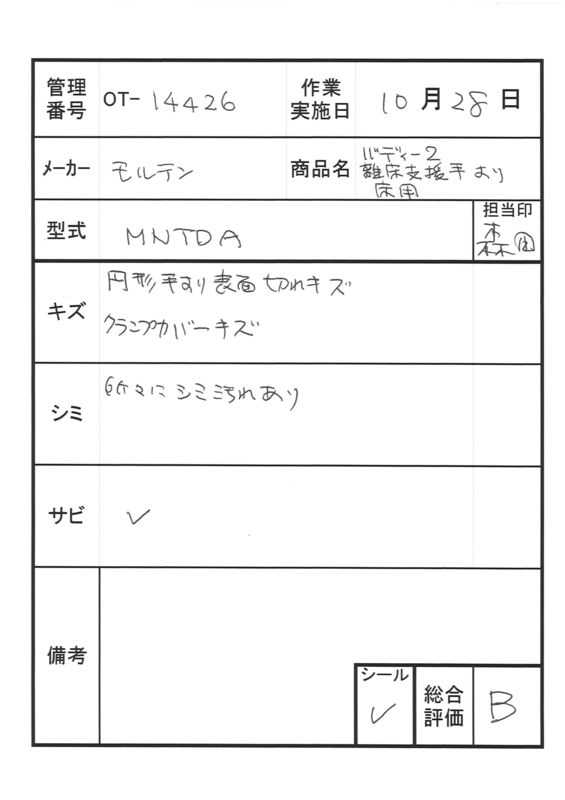 管理番号 OT- 14426 作業実施日 10月28日
メーカー モルテン 商品名 バディー2
離床支援手すり
床用
型式 MNTDA 担当印
森
キズ 円形手すり表面切れキズ
クランプカバーキズ
シミ 所々にシミ汚れあり
サビ ✓
備考
シール ✓ 総合評価 B